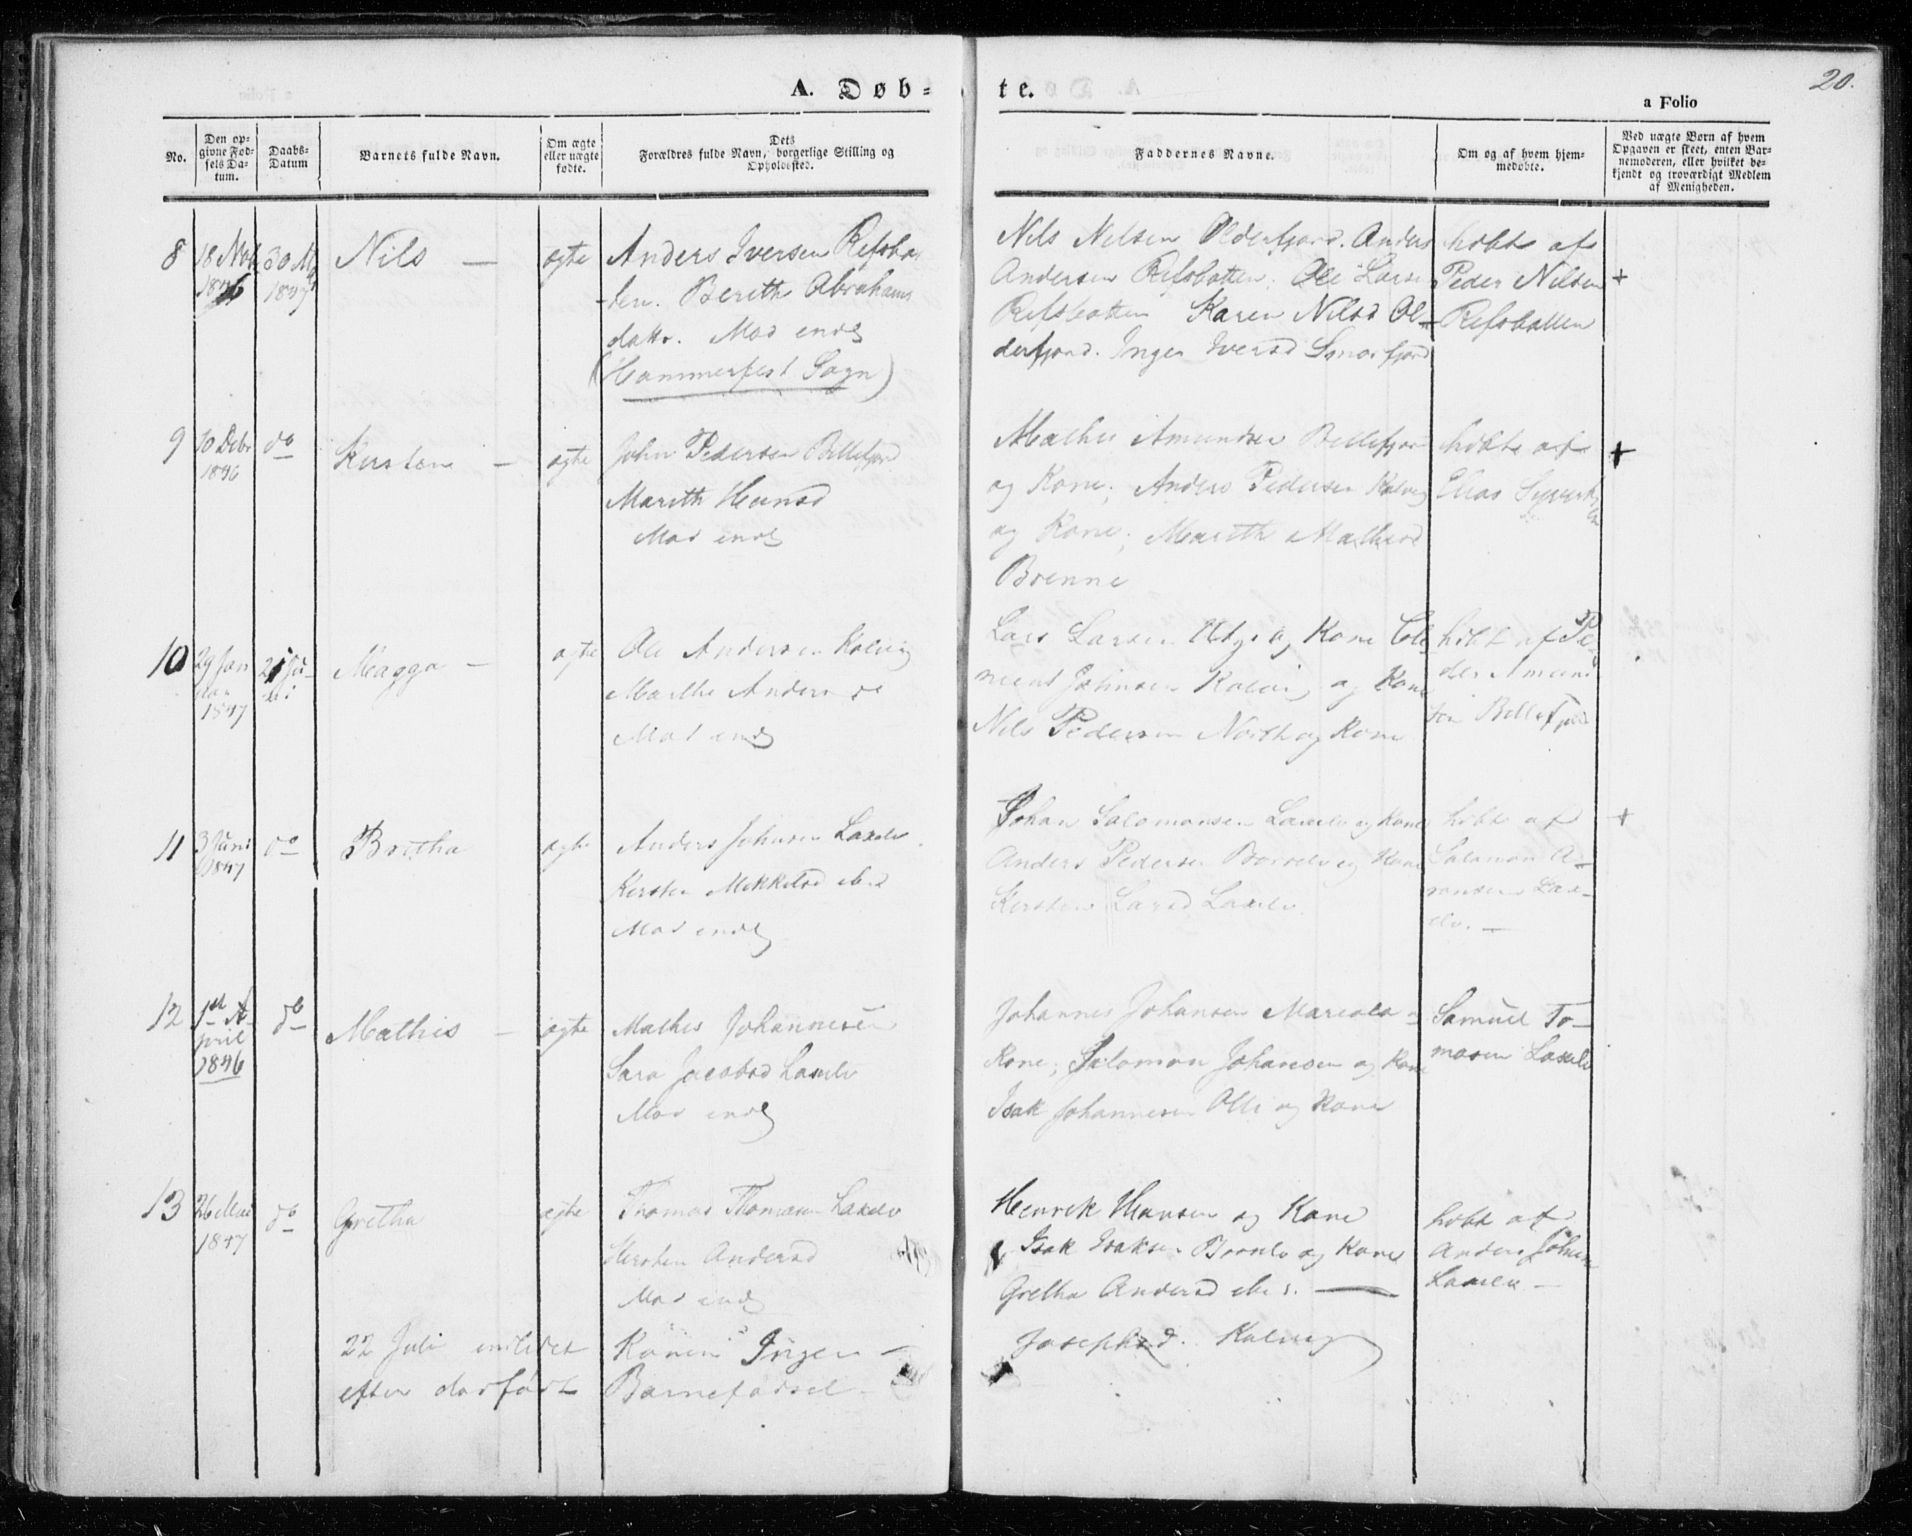 A. Døb-
te.
a Folio
20.
No.
Den op-
givne Fød-
sels Da-
tum.
Daabs-
Datum
Barnets fulde Navn.
Om ægte
eller uægte
fødte.
Dets
Forældres fulde Navn, borgerlige Stilling og
Opholdssted.
Faddernes Navne.
Om og af hvem hjem-
medøbte.
Ved uægte Børn af hvem
Opgaven er skeet, enten Bar-
nemoderen, eller hvilket be-
kjendt og troværdigt Medlem
af Menigheden.
8
18 Nob
1846
30
1847
Nils —
ægte
Anders Iversen Refsba
ten. Berith Abrahams
dattr. Mod endl
(Hammerfest Sogn)
Nils Nilsen Olderfjord. Anders
Andersen Refsbatten. Ole Larsen
Refsbatten Karen Nilsd Ol-
derfjord. Inger Iversd Smorfjord
hibt af
Peder Nilsen
Refsbatten
+
9
10 Debr
1846
do
Kirsten —
ægte
John Pedersen Billefjord
Marith Hansd
Mod endl
Mathis Amundsen Billefjor
og Kone; Anders Pedersen Kolvig
og Kone; Marith Mathisd
Brenne
hibt af
Elias
+
10
29 Jan
uar
1847
21 Ju-
li
Magga —
ægte
Ole Andersen Kolvig
Marthe Andersd
Mod endl
Lars Larsen og Kone Cle
ment Johnsen Kolvig og Kone
Nils Pedersen North og Kone
hibt af Pe-
der Amund
sen Billefjord
11
3 Juni
1847
do
Britha
ægte
Anders Johnsen Laxelv
Kirsten Mikkelsd
Mod endl
Johan Salomonsen Laxelv og Kone
Anders Pedersen og Kone
Kirsten Larsd Laxelv.
hibt af
Salamon A-
ronsen Lax-
elv. —
+
12
1st A-
pril
1846
do
Mathis —
ægte
Mathis Johannesen
Sara Jacobsd Laxelv
Mod endl
Johannes Johansen
Kone; Salomon Johansen og Kone
Isak Johannesen Olli og Kone
Samuel To-
masen Laxelv
13
26 Mai
1847
do
Gretha
ægte
Thomas Thomasen Laxelv
Kirsten Andersd
Mod endl
Henrik Hansen og Kone
Isak Isaksen og Kone
Gretha Andersd —
hibt af
Anders Johnsen
Laxelv —
22 Juli indledet
Konen Inger
Josephsd. Kolvig
efter
Barnefødsel